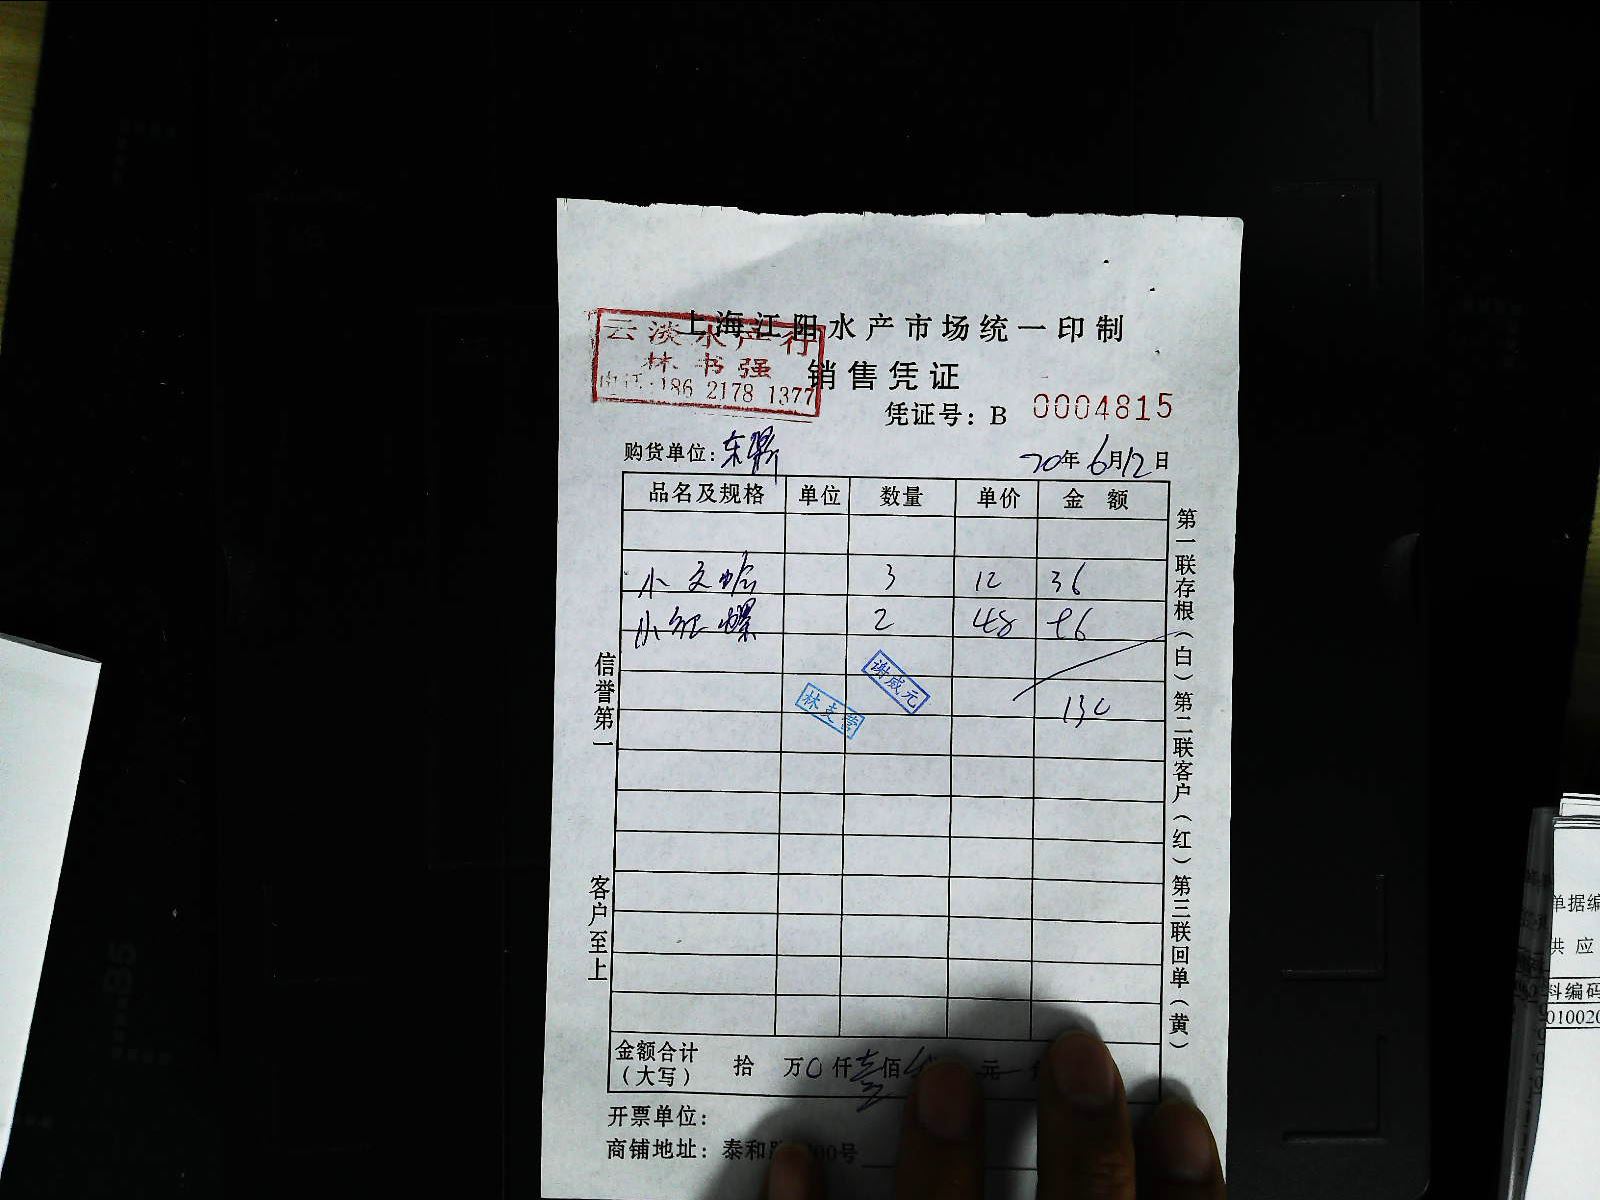 上海江阳水产市场统一印制
云淡水产行
林书强
186 2178 1377
销售凭证
凭证号：B 0004815
购货单位：东鼎
20年6月12日
品名及规格 单位 数量 单价 金 额
小文蛤 3 12 36
小红螺 2 48 96
谢咸元
林支营
信誉第一
客户至上
第一联存根（白）第二联客户（红）第三联回单（黄）
金额合计（大写） 拾 万0仟壹佰 元
开票单位：
商铺地址：泰和 00号
单据编
供 应
料编码
010020